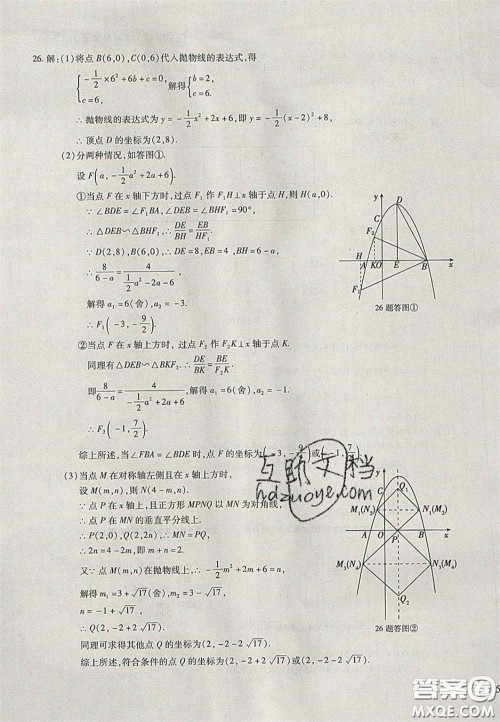 26. 解:(1)将点 B(6,0),C(0,6)代入抛物线的表达式,得
{-1/2×6²+6b+c=0, c=6, 解得{b=2, c=6.
∴ 抛物线的表达式为 y=-1/2x²+2x+6,即 y=-1/2(x-2)²+8,
∴ 顶点 D 的坐标为(2,8).
(2)分两种情况,如答图①.
设 F(a,-1/2a²+2a+6).
①当点 F 在 x 轴下方时,过点 F₁ 作 F₁H⊥x 轴于点 H,则 H(a,0).
∵ ∠BDE=∠F₁BA,∠BDE=∠BHF₁=90°,
∴ △DEB∽△BHF₁.∴ DE/BH=EB/HF₁.
∵ D(2,8),B(6,0),∴ DE=8,EB=4,BH=6-a,
∴ 8/(6-a)=4/(1/2a²-2a-6).
解得 a₁=6(舍),a₂=-3.
∴ F₁(-3,-9/2).
②当点 F 在 x 轴上方时,过点 F₂ 作 F₂K⊥x 轴于点 K.
同理有△DEB∽△BKF₂.∴ DE/BK=BE/F₂K.
即 8/(6-a)=4/(-1/2a²+2a+6),解得 a₁=6(舍),a₂=-1.
∴ F₂(-1,7/2).
综上所述,当∠FBA=∠BDE 时,点 F 的坐标为(-3,-9/2)或(-1,7/2).
(3)当点 M 在对称轴左侧且在 x 轴上方时,
设 M(m,n),则 N(4-m,n).
∵ 点 P 在 x 轴上,且正方形 MPNQ 以 MN 为对角线,
∴ 点 P 在 MN 的垂直平分线上.
∴ P(2,0),Q(2,2n),∴ MN=PQ.
∴ 2n=4-2m,即 n=2-m.
又∵ 点 M(m,n)在抛物线上,∴ -1/2m²+2m+6=n,
解得 m₁=3+√17(舍),m₂=3-√17,
n=-1+√17,
∴ Q(2,-2+2√17).
同理可求得其他点 Q 的坐标为(2,-2-2√17).
综上所述,符合条件的点 Q 的坐标为(2,-2+2√17)或(2,-2-2√17).
y
D
C
F₂
H
A
K
O
E
B
x
F₁
26 题答图①
y
Q₁
C
M₁(N₂)
N₁(M₂)
A
O
P
B
x
M₃(N₄)
N₃(M₄)
Q₂
26 题答图②
互助文档
hdzuoye.com
答案圈
MXQE.COM